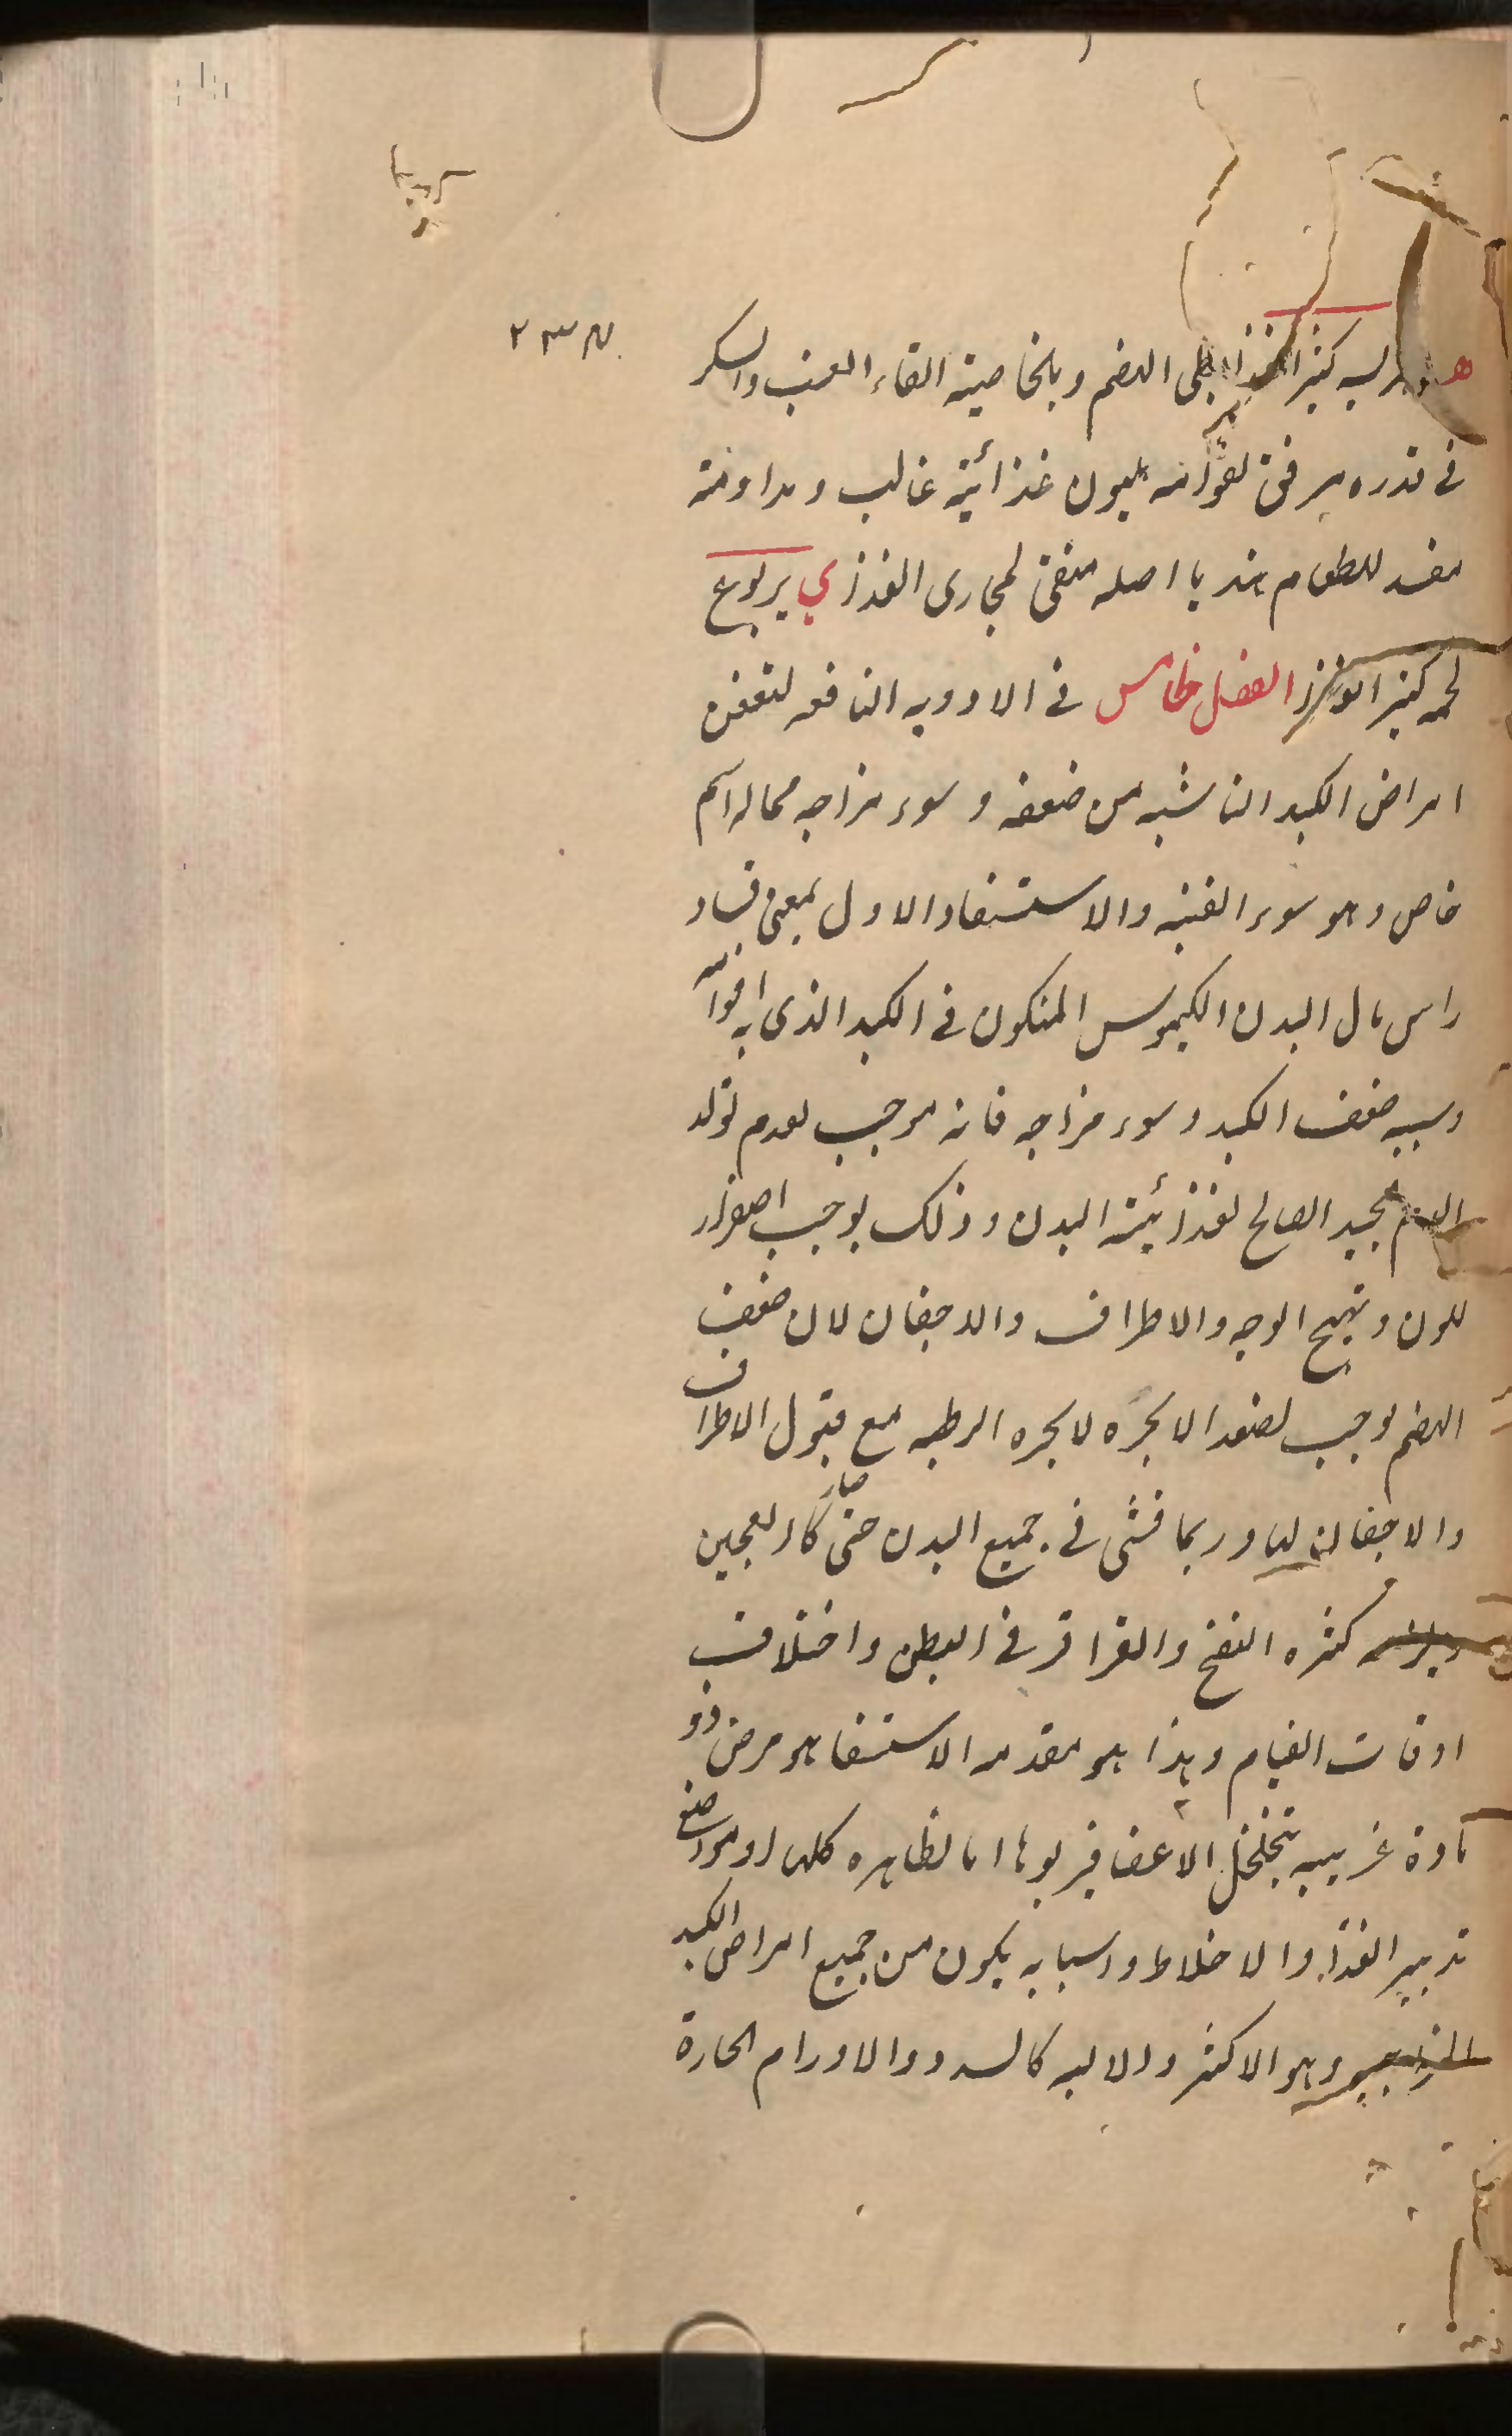 هريسه كثير الغذا بطى الهضم وبالخاصية القاء العنب والسكر
فى قدره يرقق لقوامه ليكون غذائية غالب ومداومته
مفسد للطعام هندبا اصله منقى لمجارى الغذا ى يربوع
لحمه كثير الغذا الفصل خامس فى الادويه النافعه لتعفن
امراض الكبد الناشيه من ضعفه وسوء مزاجه مماله اسم
خاص وهو سوء القنيه والاستسقا والاول بمعنى فساد
راس مال البدن الكيموس المتكون فى الكبد الذى به قوامه
وسببه ضعف الكبد وسوء مزاجه فانه موجب لعدم تولد
الدم الجيد الصالح لغذائية البدن وذلك يوجب اصفرار
للون وتهيج الوجه والاطراف والاجفان لان ضعف
الهضم يوجب لصعد الابخره لابخره الرطبه مع قبول الاطراف
والاجفان لها وربما فشى فى جميع البدن حتى صار كالعجين
ويلزمه كثره النفخ والقراقر فى البطن واختلاف
اوقات القيام وهذا هو مقدمه الاستسقا هو مرض ذو
مادة غريبه يتخلخل الاعضا فيربوها اما لظاهره كلها او مواضع
تدبير الغذا والاخلاط واسبابه يكون من جميع امراض الكبد
وهو الاكثر والاليه كالسدد والاورام الحارة